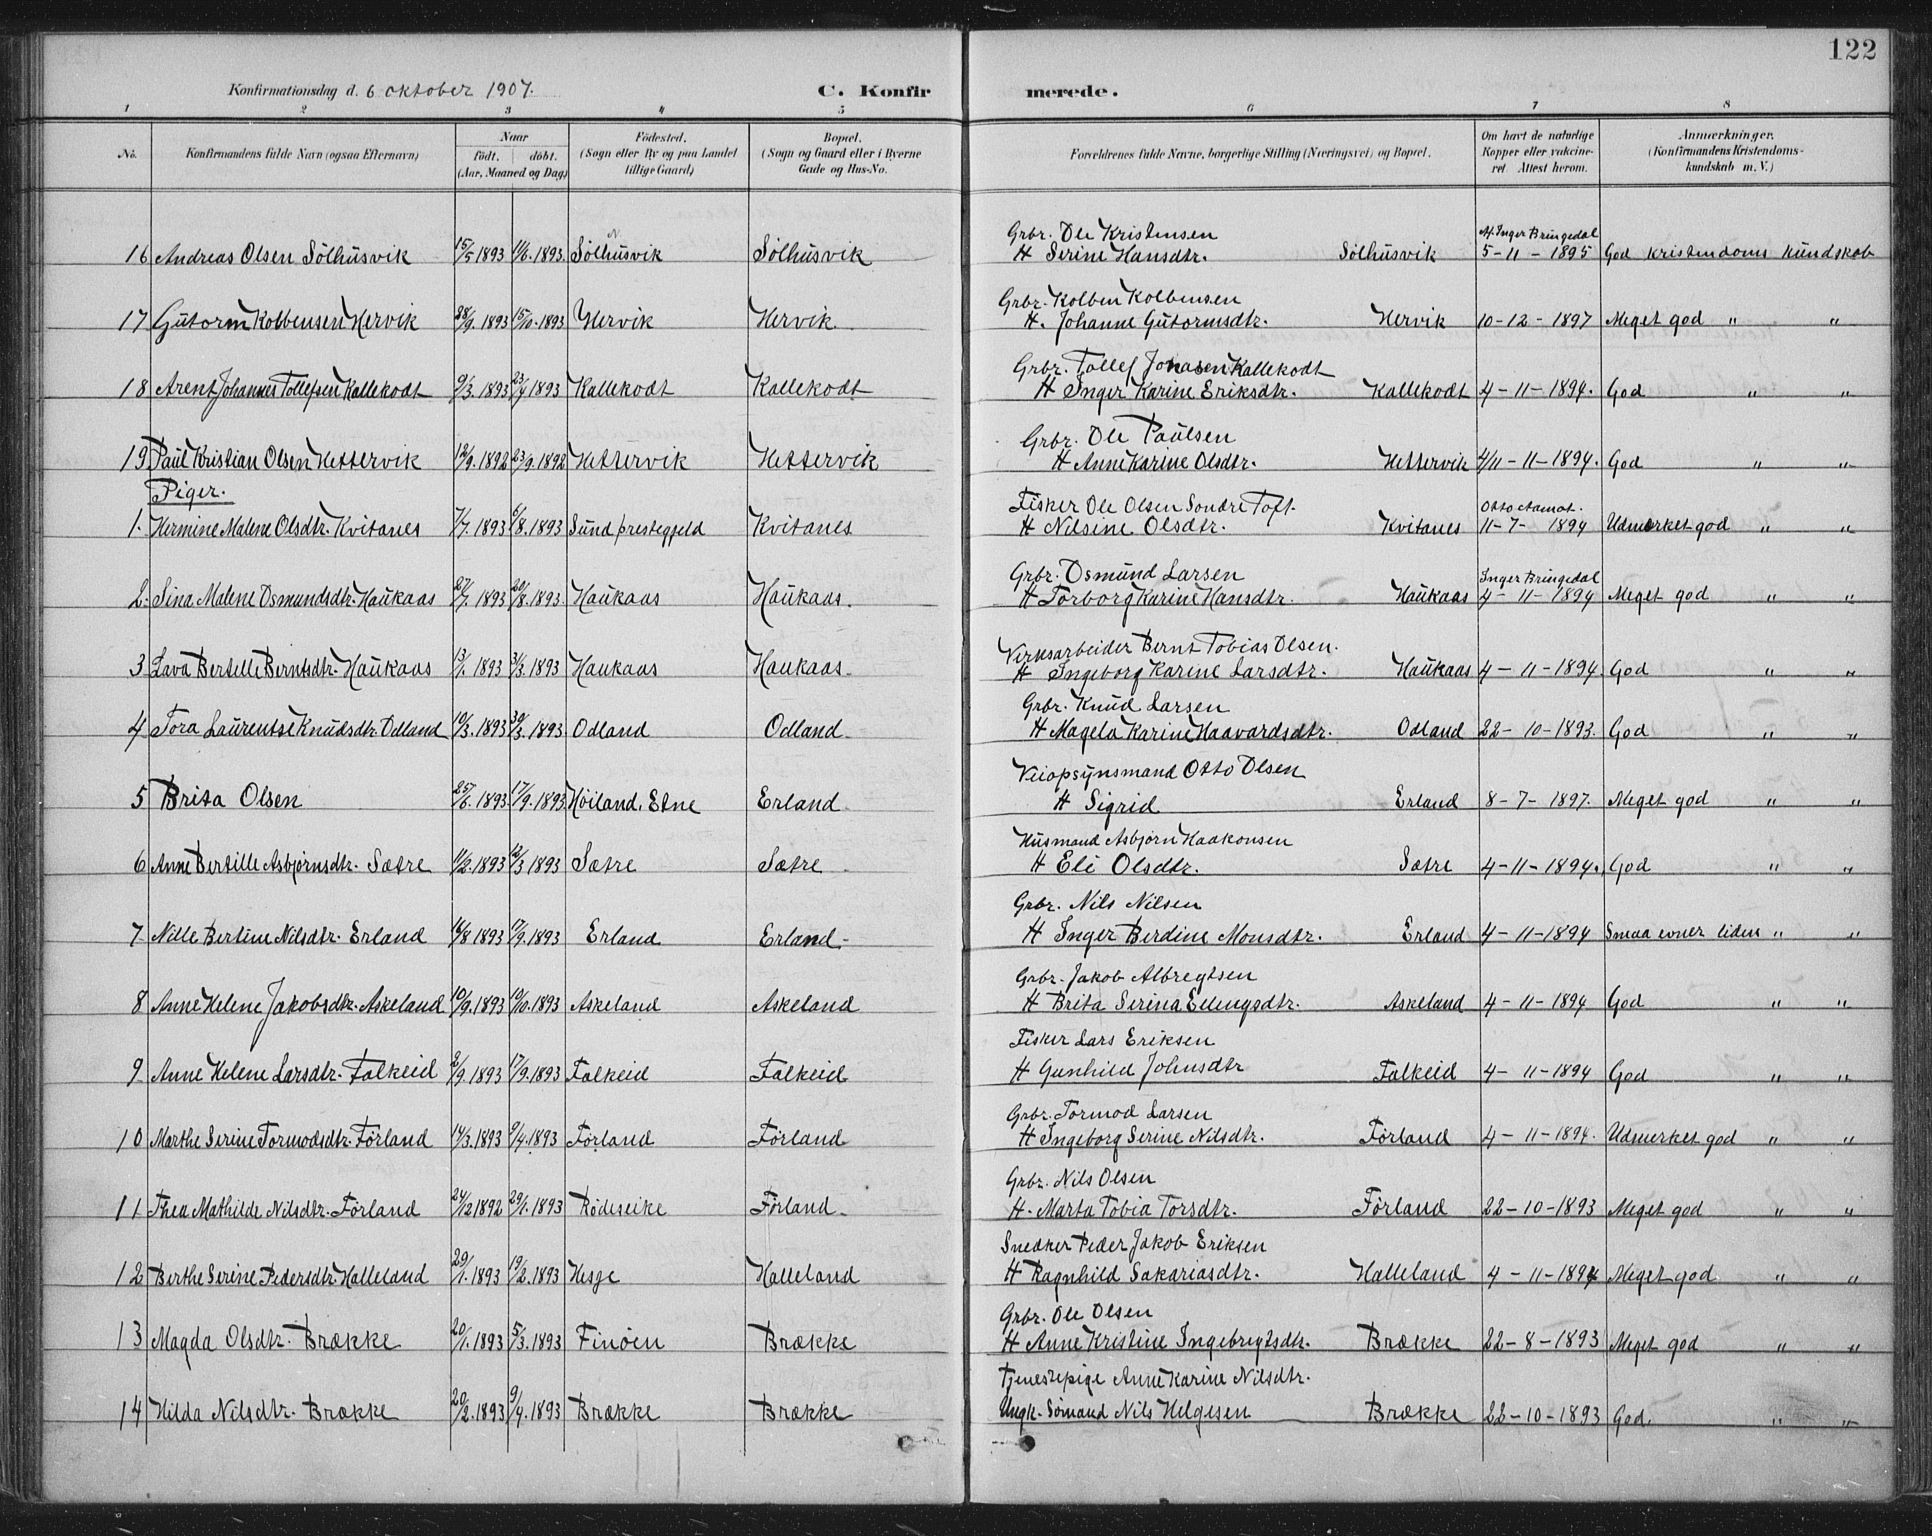 122
Konfirmationsdag d. 6 oktober 1907.
C. Konfirmerede.
1 2 3 4 5 6 7 8
No. Konfirmandens fulde Navn (ogsaa Efternavn) Naar født. døbt. (Aar, Maaned og Dag) Fødested. (Sogn eller By og paa Landet tillige Gaard) Bopæl. (Sogn og Gaard eller i Byerne Gade og Hus-No. Forældrenes fulde Navne, borgerlige Stilling (Næringsvei) og Bopæl. Om havt de naturlige Kopper eller vakcineret. Attest herom. Anmærkninger. (Konfirmandens Kristendomskundskab m. V.)
Grbr. Ole Kristensen At. Inger Bringedal
16 Andreas Olsen Sølhusvik 15/5 1893 11/6. 1893. Sølhusvik Sølhusvik H Serine Hansdtr. Sølhusvik 5-11-1895 God Kristendoms kundskab
Grbr. Kolben Kolbensen
17 Gutorm Kolbensen Hervik 28/9. 1893 15/10. 1893 Hervik Hervik H. Johanne Gutormsdtr. Hervik 10-12-1897 Meget god " "
Grbr. Tollef Jonasen Kallekodt
18 Arent Johannes Tollefsen Kallekodt 9/3. 1893 23/4 1893 Kallekodt Kallekodt H Inger Karine Eriksdtr. Kallekodt 4-11-1894. God " "
Grbr. Ole Paulsen
19 Paul Kristian Olsen Hettervik 12/9. 1892 23/9. 1892 Hettervik Hettervik H Anne Karine Olsdtr. Hettervik 4/11-11-1894. God " "
Piger.
Fisker Ole Olsen Sondre Toft. Otto Aamot.
1. Hermine Malene Olsdtr. Kvitanes 7/7. 1893 6/8. 1893 Sund prestegjeld Kvitanes H Nilsine Olsdtr. Kvitanes 11-7-1894 Udmerket god " "
Grbr. Osmund Larsen Inger Bringedal
2. Sina Malene Osmundsdtr. Haukaas 27/7. 1893 20/8. 1893. Haukaas Haukaas. H Torborg Karine Hansdtr. Haukaas 4-11-1894 Meget god " "
Verksarbeider Bernt Tobias Olsen.
3 Lava Bertille Berntsdtr. Haukaas 13/1. 1893 3/3. 1893 Haukaas Haukaas. H Ingeborg Karine Larsdtr. Haukaas 4-11-1894. God " "
Grbr. Knud Larsen
4 Tora Laurentse Knudsdtr. Odland 10/3. 1893 30/3. 1893 Odland Odland H Magela Karine Haavardsdtr. Odland 22-10-1893. God " "
Veiopsynsmand Otto Olsen
5 Brita Olsen 25/6. 1893 17/9. 1893 Høiland, Etne Erland H Sigrid Erland 8-7-1897. Meget god " "
Husmand Asbjørn Haakonsen
6 Anne Bertille Asbjørnsdtr. Sætre 11/2. 1893 12/3 1893 Sætre Sætre H Eli Olsdtr. Sætre 4-11-1894. God " "
Grbr. Nils Nilsen
7 Nille Bertine Nilsdtr. Erland 16/8. 1893 17/9. 1893 Erland Erland- H Inger Berdine Monsdtr. Erland 4-11-1894 Smaa evner liden " "
Grbr. Jakob Albregtsen
8 Anne Helene Jakobsdtr. Askeland 10/9. 1893 19/10. 1893 Askeland Askeland H Brita Serina Ellengsdtr. Askeland 4-11-1894 God " "
Fisker Lars Eriksen
9 Anne Helene Larsdtr. Falkeid 2/9. 1893 17/9. 1893 Falkeid Falkeid H Gunhild Johnsdtr Falkeid 4-11-1894 God " "
Grbr. Tormod Larsen
10 Marthe Serine Tormodsdtr. Førland 14/3. 1893 9/4. 1893 Førland Førland H Ingeborg Serine Nilsdtr. Førland 4-11-1894. Udmerket god " "
Grbr. Nils Olsen
11 Thea Mathilde Nilsdtr. Førland 24/12 1892 29/1. 1893 Rødeseike Førland. H. Marta Tobia Torsdtr. Førland 22-10-1893 Meget god " "
Snedker Peder Jakob Eriksen
12 Berthe Serine Pedersdtr. Halleland 29/1. 1893 19/2. 1893 Hesje Halleland H Ragnhild Sakariasdtr. Halleland 4-11-1894 Meget god " "
Grbr. Ole Olsen
13 Magda Olsdtr. Brække 20/1. 1893 5/3. 1893 Finøen Brække H Anne Kristine Ingebregtsdtr. Brække 22-8-1893 Meget god " "
Tjenestepige Anne Karine Nilsdtr.
14 Hilda Nilsdtr. Brække 20/2. 1893 9/4. 1893 Brække Brække Ungk. Sømand Nils Helgesen Brække 22-10-1893 God. " "